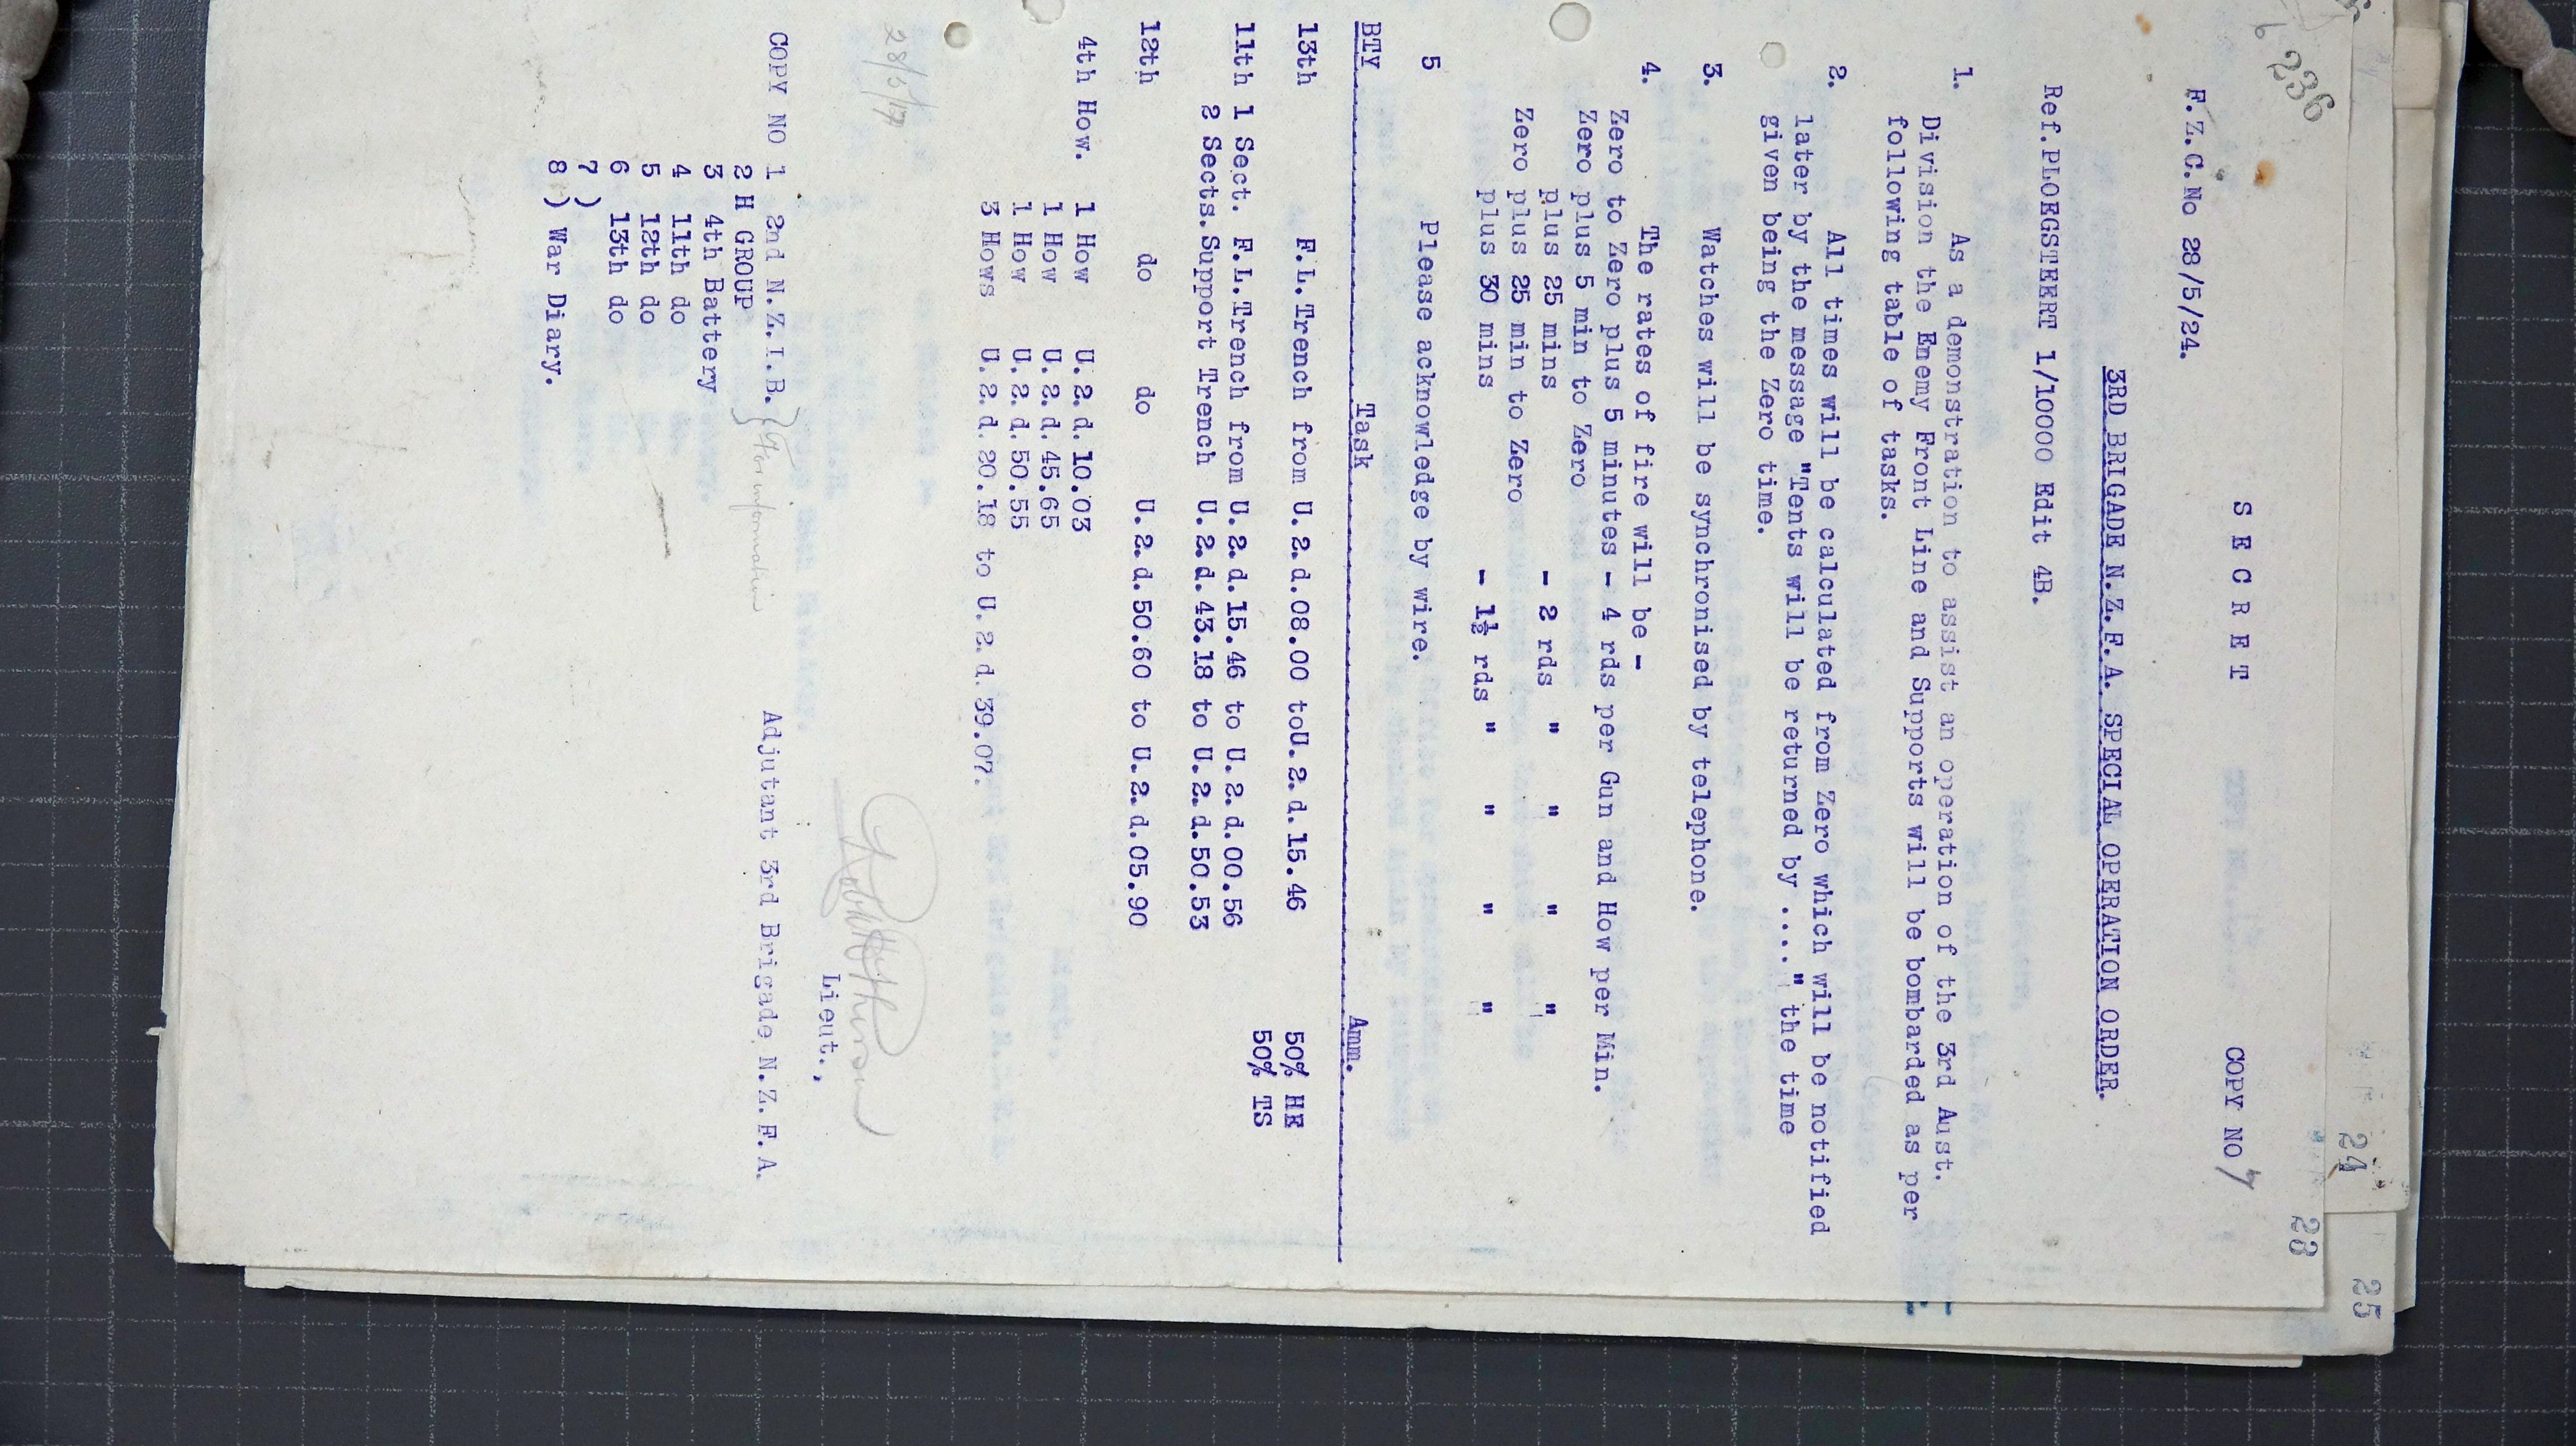 236
S E C R E T
COPY NO 7
F.Z.C.No 28/5/24.
3RD BRIGADE N.Z.F.A. SPECIAL OPERATION ORDER.
Ref.PLOEGSTEERT 1/10000 Edit 4B.
1. As a demonstration to assist an operation of the 3rd Aust.
Division the Enemy Front Line and Supports will be bombarded as per
following table of tasks.
2. All times will be calculated from Zero which will be notified
later by the message "Tents will be returned by ...." the time
given being the Zero time.
3. Watches will be synchronised by telephone.
4. The rates of fire will be -
Zero to Zero plus 5 minutes - 4 rds per Gun and How per Min.
Zero plus 5 min to Zero
plus 25 mins - 2 rds " " " "
Zero plus 25 min to Zero
plus 30 mins - 1½ rds " " " "
5 Please acknowledge by wire.
BTY Task Amm.
13th F.L.Trench from U.2.d.08.00 toU.2.d.15.46 50% HE
50% TS
11th 1 Sect. F.L.Trench from U.2.d.15.46 to U.2.d.00.56
2 Sects.Support Trench U.2.d.43.18 to U.2.d.50.53
12th do do U.2.d.50.60 to U.2.d.05.90
4th How. 1 How U.2.d.10.03
1 How U.2.d.45.65
1 How U.2.d.50.55
3 Hows U.2.d.20.18 to U.2.d.39.07.
28/5/17
Lieut.,
Adjutant 3rd Brigade N.Z.F.A.
COPY NO 1 2nd N.Z.I.B. } For information
2 H GROUP
3 4th Battery
4 11th do
5 12th do
6 13th do
7 )
8 ) War Diary.
23
24
25